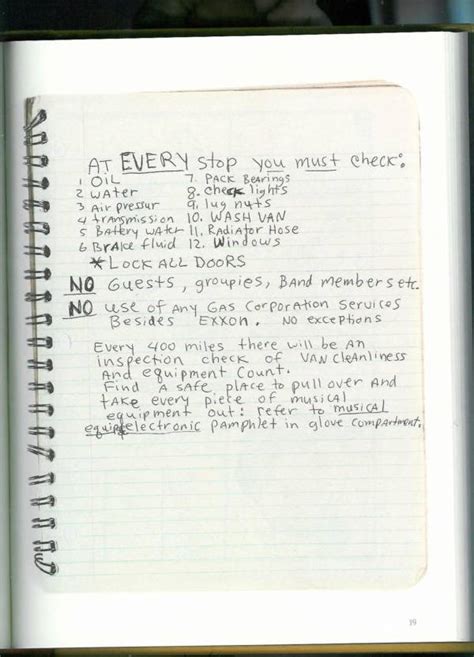 AT EVERY stop you must check:
1 OIL 7. PACK BeArings
2 WATer 8. check lights
3 Air pressur 9. lug nuts
4 transmission 10. WASH VAN
5 BATTery WATer 11. RADIATOR Hose
6. BrAke fluid 12. Windows
*LOCK ALL DOORS
NO Guests, groupies, BAND members etc.
NO use of Any GAS CorporATion Services
Besides EXXON. NO exceptions
Every 400 miles there will be An
inspection check of VAN cleAnliness
And equipment Count.
Find A SAfe place to pull over And
tAke every piece of musicAl
equipment out: refer to musical
equip/electronic pAmphlet in glove compArtment.
19